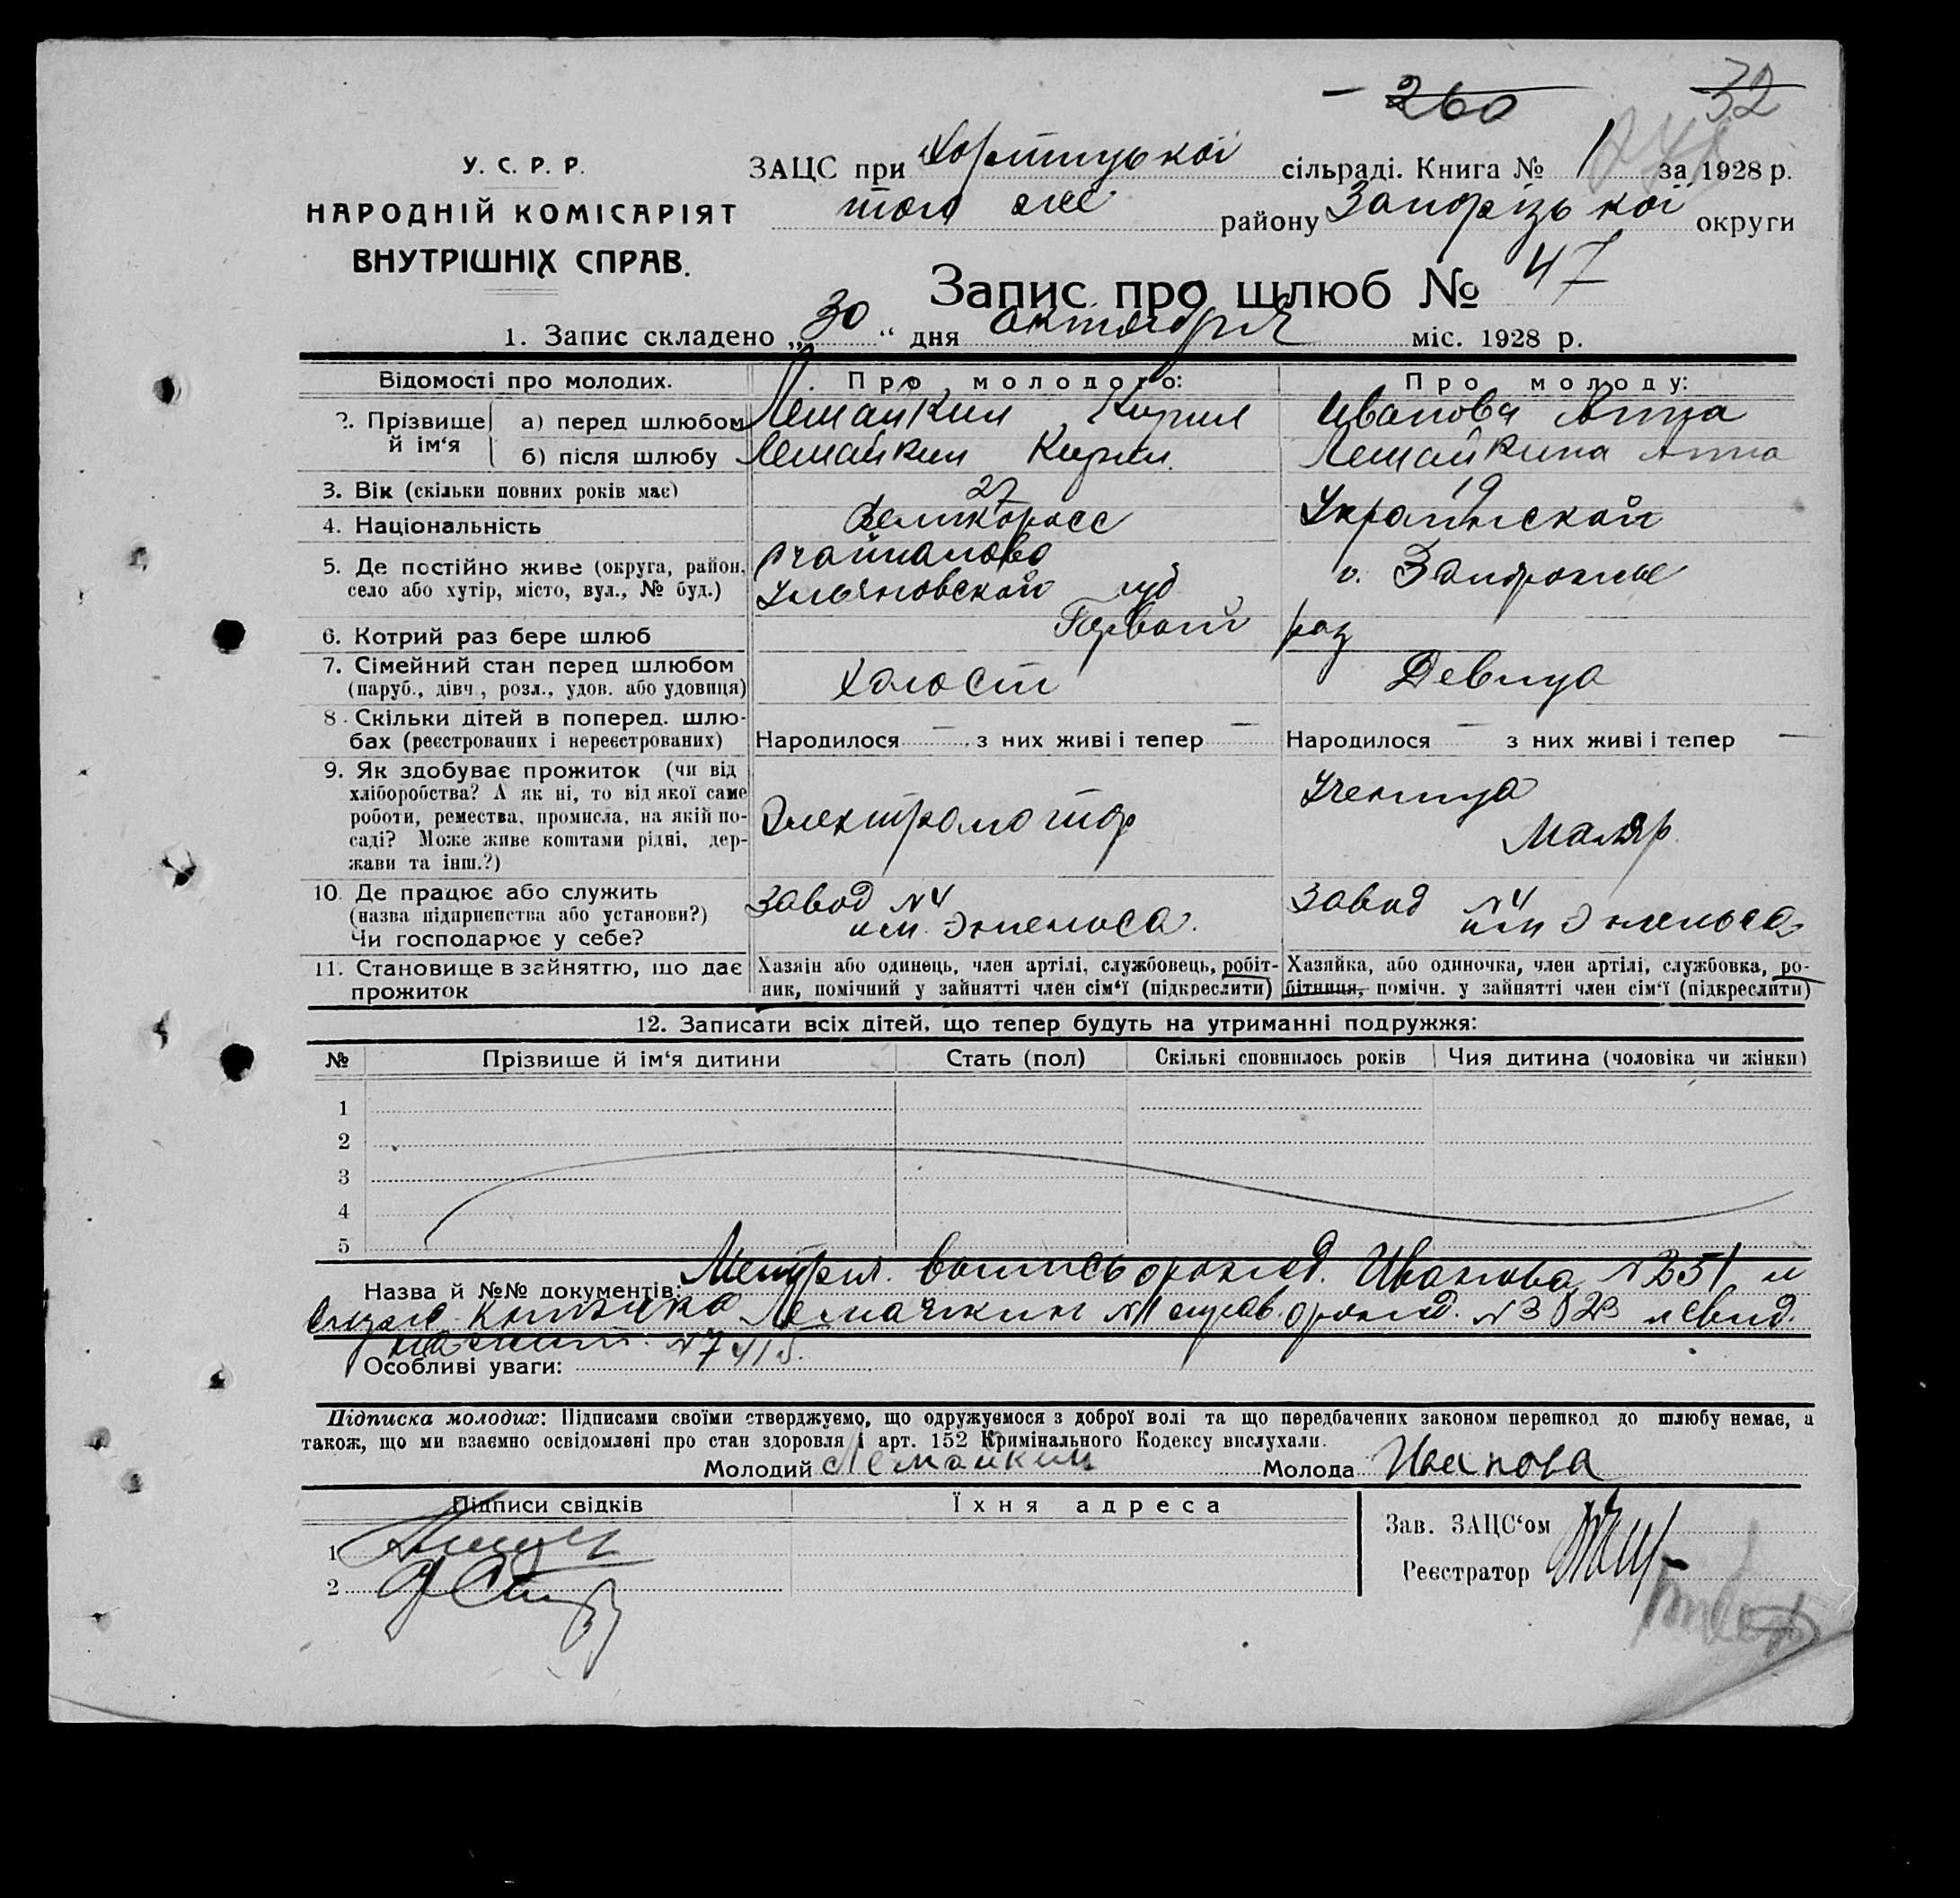 260 32
У. С. Р. Р.
НАРОДНІЙ КОМІСАРІЯТ
ВНУТРІШНІХ СПРАВ.
ЗАЦС при Хортицької сільраді. Книга № 1 за 1928 р.
того же району Запорізької округи
Запис про шлюб № 47
1. Запис складено „30“ дня октября міс. 1928 р.
Відомості про молодих. Про молодого: Про молоду:
2. Прізвище й ім‘я
а) перед шлюбом Лемайкин Кирил Иванова Анна
б) після шлюбу Лемайкин Кирил Лемайкина Анна
3. Вік (скільки повних років має) 27 19
4. Національність Великоросс Украинской
5. Де постійно живе (округа, район,
село або хутір, місто, вул., № буд.)
Ульяновской губ
Запорожье
6. Котрий раз бере шлюб Первый раз
7. Сімейний стан перед шлюбом
(паруб., дівч., розл., удов. або удовиця)
Холост Девица
8. Скільки дітей в поперед. шлю-
бах (реєстрованих і нереєстрованих)
Народилося — з них живі і тепер — Народилося — з них живі і тепер —
9. Як здобуває прожиток (чи від
хліборобства? А як ні, то від якої саме
роботи, ремества, промисла, на якій по-
саді? Може живе коштами рідні, дер-
жави та інш.?)
Электромотор
Ученица
Маляр
10. Де працює або служить
(назва підприємства або установи?)
Чи господарює у себе?
Завод №4
им. Энгельса.
Завод №4
им Энгельса
11. Становище в зайняттю, що дає
прожиток
Хазяїн або одинець, член артілі, службовець, робіт-
ник, помічний у зайнятті член сім‘ї (підкреслити)
Хазяйка, або одиночка, член артілі, службовка, ро-
бітниця, помічн. у зайнятті член сім‘ї (підкреслити)
12. Записати всіх дітей, що тепер будуть на утриманні подружжя:
№ Прізвище й ім‘я дитини Стать (пол) Скількі сповнилось років Чия дитина (чоловіка чи жінки)
1
2
3
4
5
Назва й №№ документів: Иванова №251 и
книжка
№7415.
Особливі уваги:
Підписка молодих: Підписами своїми стверджуємо, що одружуємося з доброї волі та що передбачених законом перешкод до шлюбу немає, а
також, що ми взаємно освідомлені про стан здоровля і арт. 152 Кримінального Кодексу вислухали.
Молодий Лемайкин Молода Иванова
Підписи свідків Їхня адреса
Зав. ЗАЦС‘ом
1
Реєстратор
2